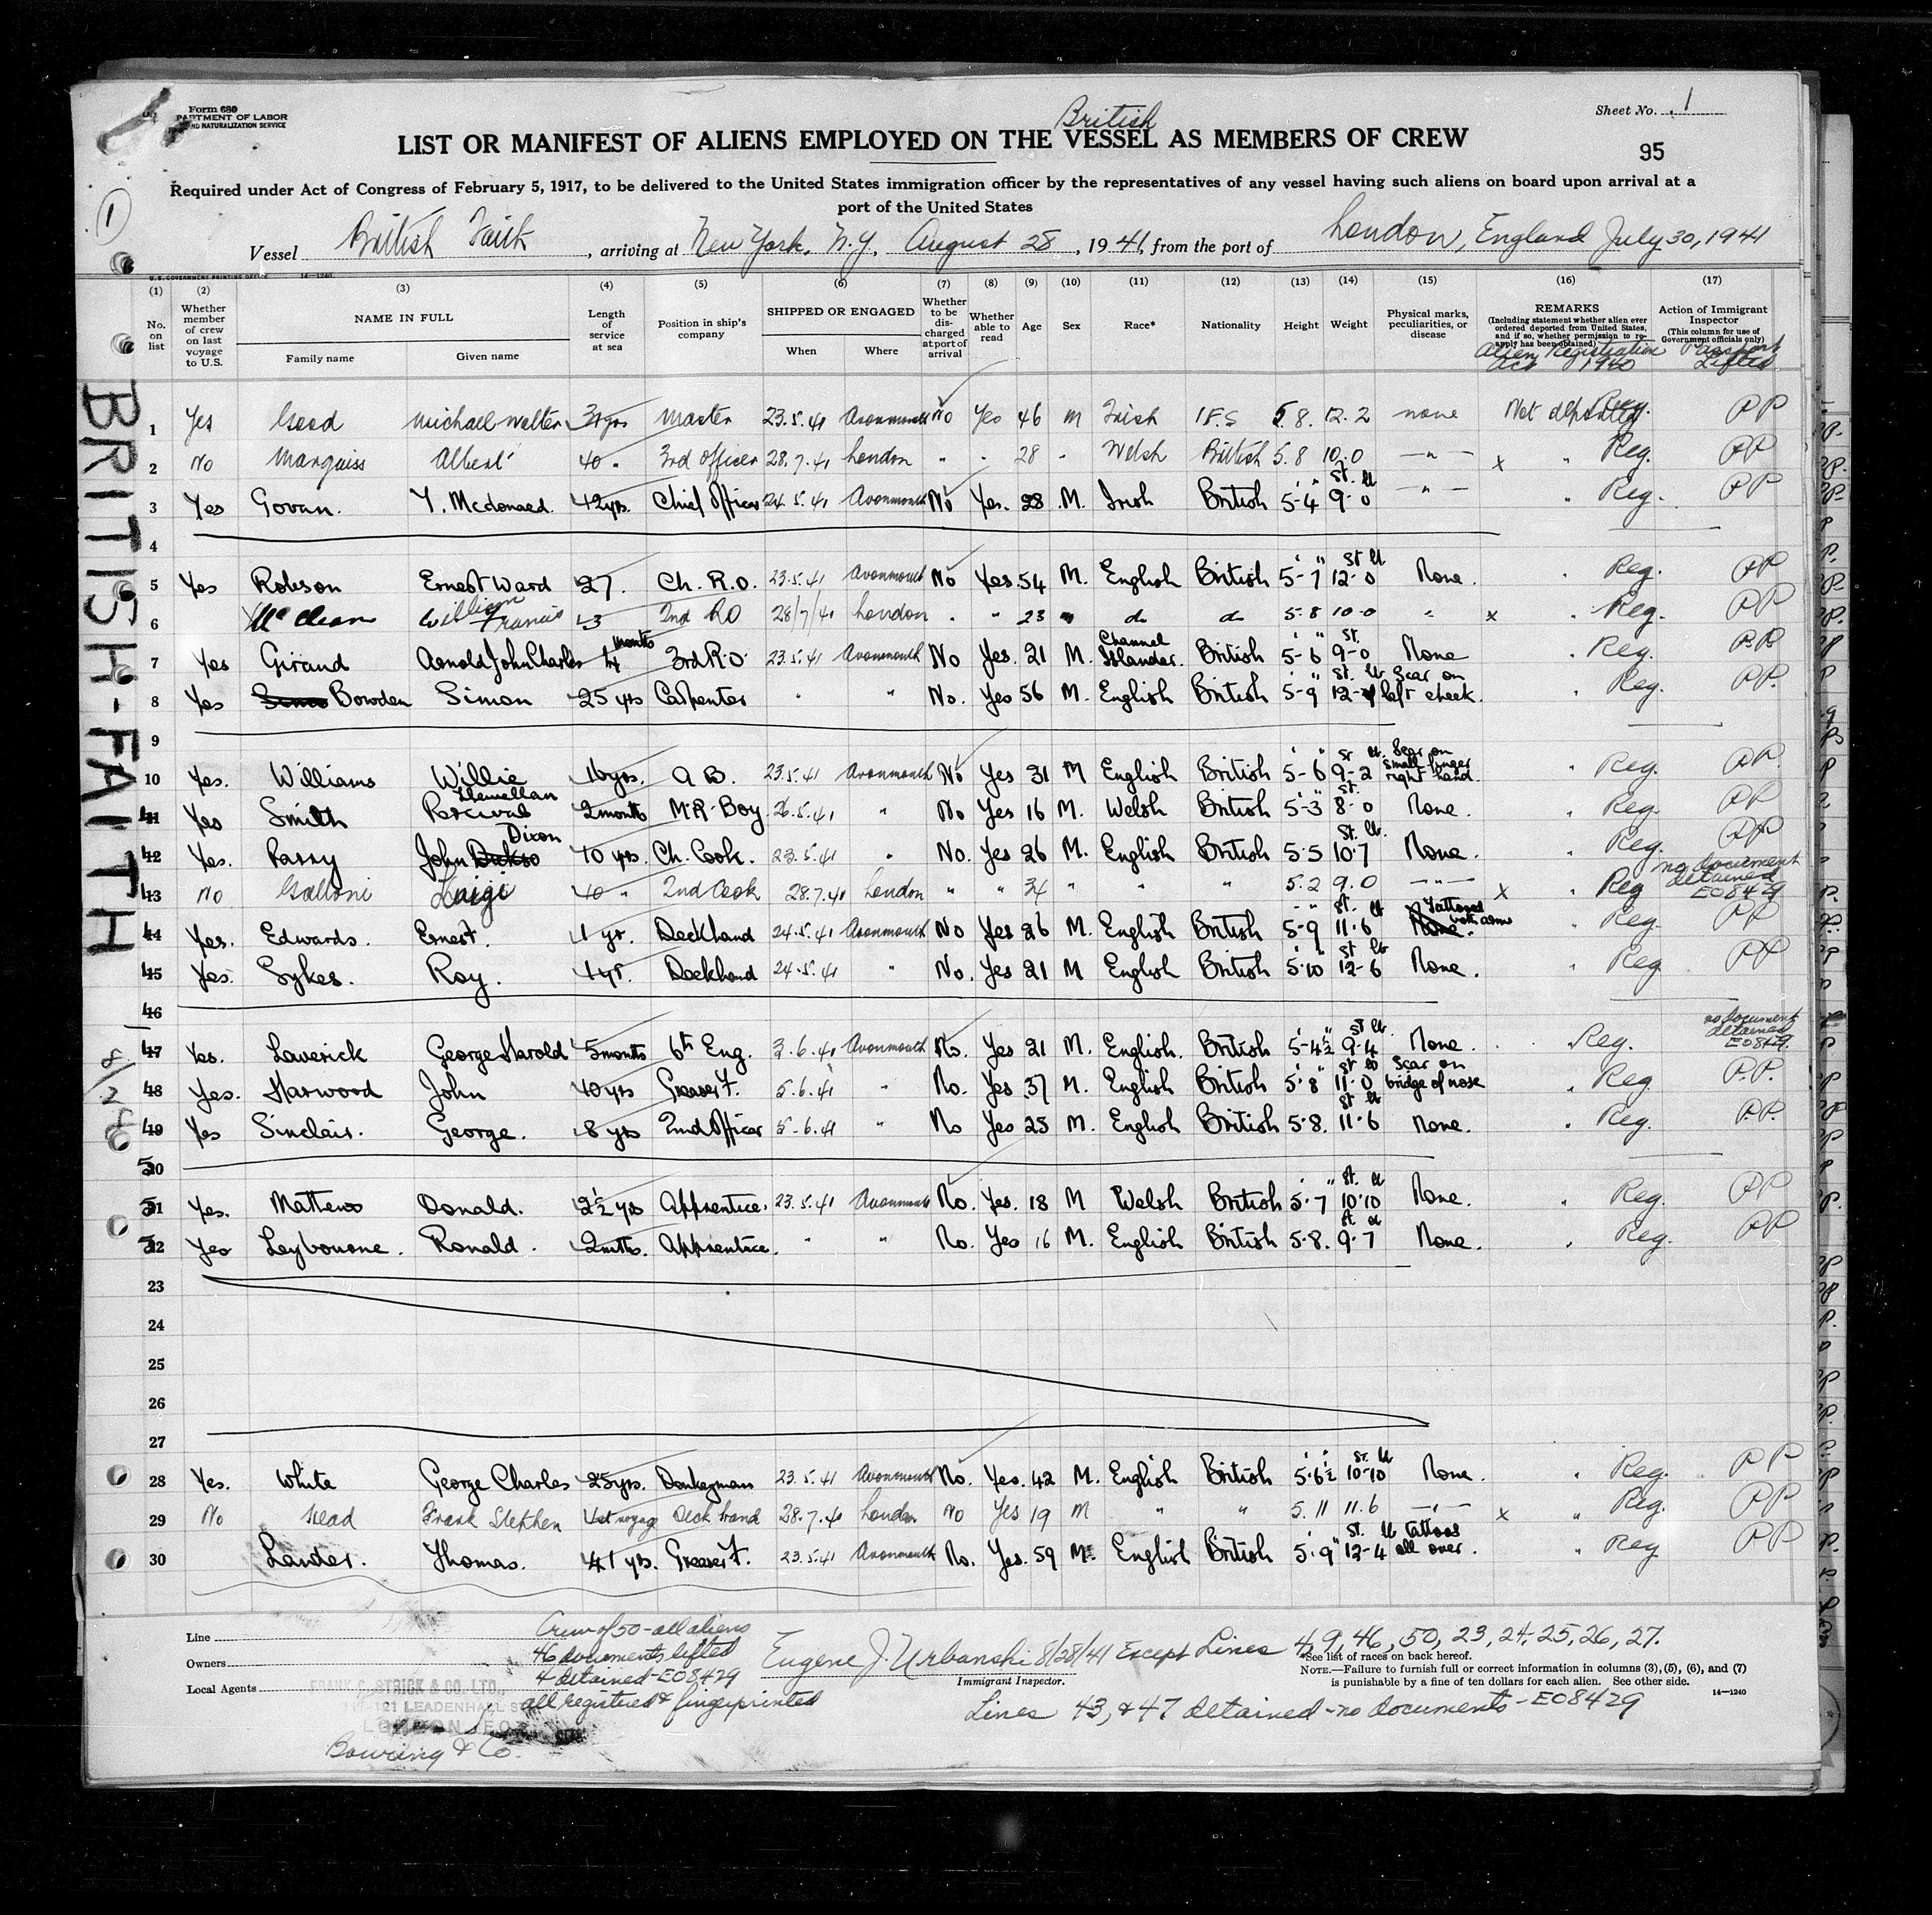 Form 680
PARTMENT OF LABOR
AND NATURALIZATION SERVICE
Sheet No. 1
British
LIST OR MANIFEST OF ALIENS EMPLOYED ON THE VESSEL AS MEMBERS OF CREW
95
Required under Act of Congress of February 5, 1917, to be delivered to the United States immigration officer by the representatives of any vessel having such aliens on board upon arrival at a
port of the United States
1
Vessel British Faith, arriving at New York, N.Y. August 28, 1941, from the port of London, England July 30, 1941
U.S. GOVERNMENT PRINTING OFFICE 14—1240
(1) No. on list
(2) Whether member of crew on last voyage to U.S.
(3) NAME IN FULL Family name Given name
(4) Length of service at sea
(5) Position in ship's company
(6) SHIPPED OR ENGAGED When Where
(7) Whether to be discharged at port of arrival
(8) Whether able to read
(9) Age
(10) Sex
(11) Race*
(12) Nationality
(13) Height
(14) Weight
(15) Physical marks, peculiarities, or disease
(16) REMARKS (Including statement whether alien ever ordered deported from United States, and if so, whether permission to re-apply has been obtained) Alien Registration Act 1940
(17) Action of Immigrant Inspector (This column for use of Government officials only) Passport Lifted
BRITISH-FAITH
1 Yes Michael Walter Master 23.5.41 Avonmouth No Yes 46 M Irish I.F.S 5.8. 12.2 none Not deported Reg. PP
2 No Marquiss Albert 40 " 3rd Officer 28.7.41 London " " 28 " Welsh British 5.8 10.0 —"— x " Reg. PP
3 Yes Govan. T. Mcdonaed. 42yrs. Chief Officer 24.5.41 Avonmouth No Yes. 28 M. Irish British 5-4 St. 9-0 —"— " Reg. PP
4
5 Yes Robson Ernest Ward 27. Ch. R.O. 23.5.41 Avonmouth No Yes. 54 M. English British 5-7 St lb 12-0 None. " Reg. PP
6 McClean William Francis 2nd RO 28/7/41 London " " 23 " do do 5-8 10-0 " x " Reg. PP
7 Yes Giraud Arnold John Charles 4 months 3rd R.O. 23.5.41 Avonmouth No Yes. 21 M. Channel Islander. British 5-6 St. 9-0 None " Reg. PP
8 Yes Bowden Simon 25 yrs Carpenter " " No. Yes 56 M. English British 5-9 St. lb Scar on left cheek. " Reg. PP.
9
10 Yes. Williams Willie 16yrs. A B. 23.5.41 Avonmouth No Yes 31 M English British 5-6 St lb 9-2 Scar on small finger right hand. " Reg. PP.
41 Yes Smith Percival Llewellan 2months M.R. Boy 26.5.41 " No Yes 16 M. Welsh British 5-3 St. 8-0 None. " Reg. PP
42 Yes. Parry John Dixon 10 yrs. Ch. Cook. 23.5.41 " No. Yes 26 M. English British 5.5 St. lb. 10.7 None. " Reg. PP
43 No Galloni Luigi 40 " 2nd Cook 28.7.41 London " " 34 " " " 5.2 9.0 —"— x " Reg no document detained E08429
44 Yes. Edwards. Ernest. 1 yr. Deckhand 24.5.41 Avonmouth No Yes 26 M. English British 5-9 St. lb 11.6 None. Tattooed both arms " Reg. PP
45 Yes. Sykes. Roy. 4yr. Deckhand 24.5.41 " No. Yes 21 M English British 5.10 St lb 12-6 None. " Reg. PP
46
47 Yes. Laverick George Harold 5months 6th Eng. 3.6.41 Avonmouth No. Yes 21 M. English. British 5-4½ St lb 9-4 None. Reg. no document detained E08429.
48 Yes. Harwood John 10 yrs Greaser F. 5.6.41 " No. Yes 37 M. English British 5.8 St lb 11.0 Scar on bridge of nose " Reg. P.P.
49 Yes Sinclair. George. 8 yrs 2nd Officer 5-6.41 " No Yes 25 M. English British 5.8. St lb 11.6 None. " Reg. P.P.
50
51 Yes. Mathews Donald. 2½ yrs Apprentice. 23.5.41 Avonmouth No. Yes. 18 M Welsh British 5.7 St. lb 10.10 None. " Reg. PP
52 Yes Leybourne. Ronald. 2mths. Apprentice. " " No. Yes 16 M. English British 5.8. St. lb 9.7 None. " Reg. PP
23
24
25
26
27
28 Yes. White George Charles 25yrs. Donkeyman 23.5.41 Avonmouth No. Yes. 42 M. English British 5.6½ St. lb 10-10 None. " Reg. PP
29 No Head Frank Stephen 1st voyage Deck hand 28.7.41 London No Yes 19 M " " 5.11 11.6 —"— x " Reg. PP
30 Lander. Thomas. 41 yrs. Greaser F. 23.5.41 Avonmouth No. Yes. 59 M. English British 5.9" St. lb 12-4 tattoos all over. " Reg PP
Line
Owners
Local Agents FRANK C. STRICK & CO. LTD.,
121 LEADENHALL ST
LONDON
Bowring & Co.
Crew of 50 - all aliens
46 documents lifted
4 detained - E08429
all registered & fingerprinted
Eugene J. Urbanski 8/28/41 Except Lines 4, 9, 46, 50, 23, 24, 25, 26, 27.
Immigrant Inspector.
*See list of races on back hereof.
NOTE.—Failure to furnish full or correct information in columns (3), (5), (6), and (7)
is punishable by a fine of ten dollars for each alien. See other side.
14—1240
Lines 43, & 47 detained - no documents - E08429